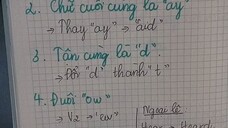 2. Chữ cuối cùng là "ay"
→ Thay "ay" → "aid"
3. Tận cùng là "d"
→ Đổi "d" thành "t"
4. Đuôi "ow"
→ V2 → "ew"
Ngoại lệ